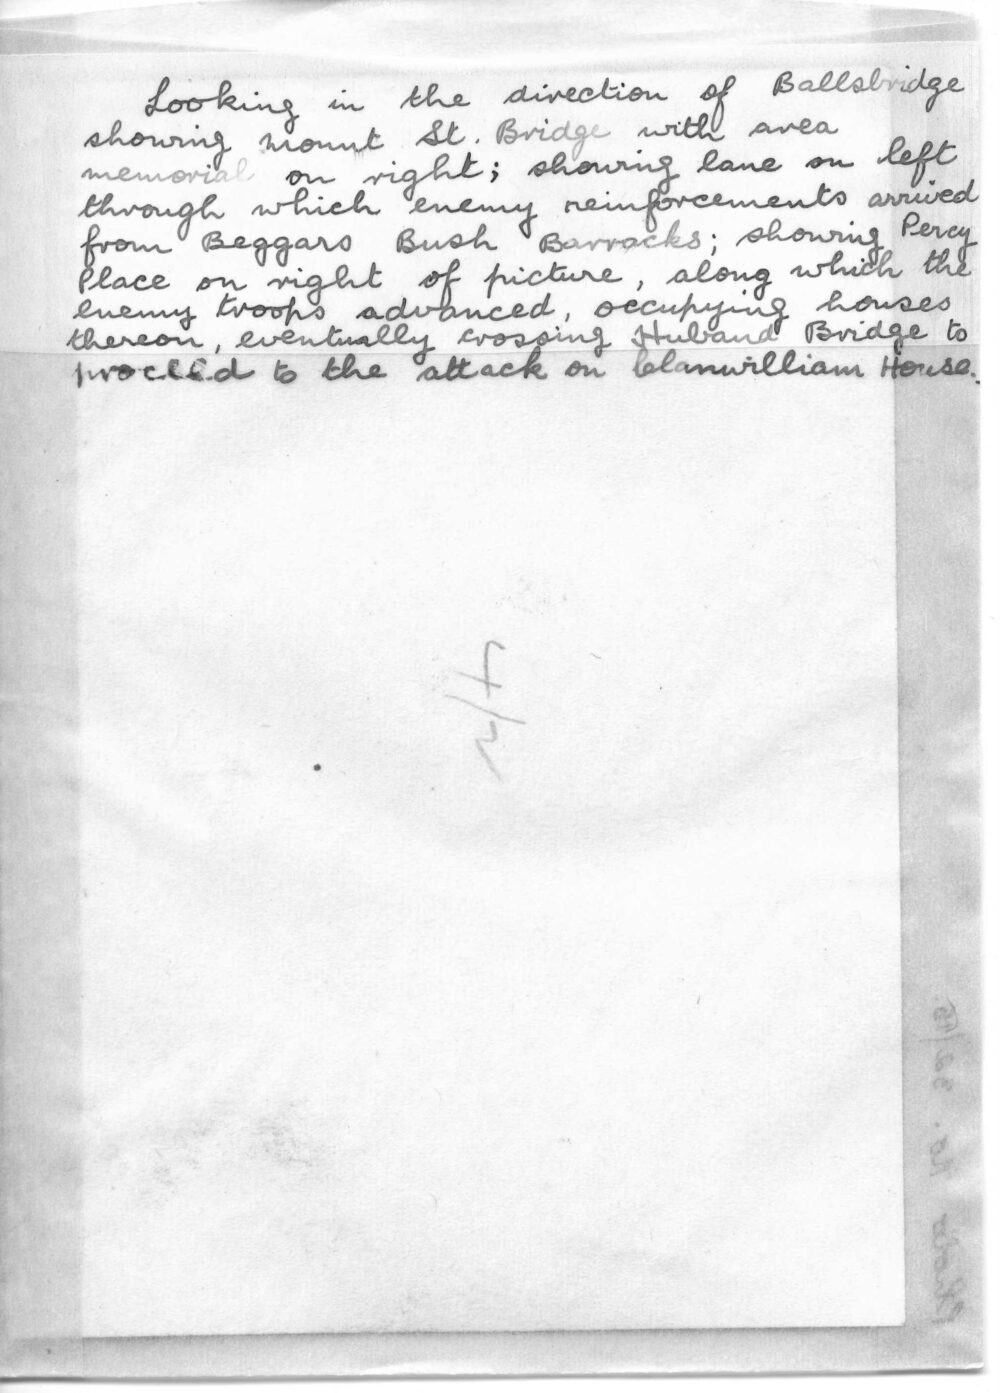 Looking in the direction of Ballsbridge
showing Mount St. Bridge with area
memorial on right; showing lane on left
through which enemy reinforcements arrived
from Beggars Bush Barracks; showing Percy
Place on right of picture, along which the
enemy troops advanced, occupying houses
thereon, eventually crossing Huband Bridge to
proceed to the attack on Clanwilliam House.